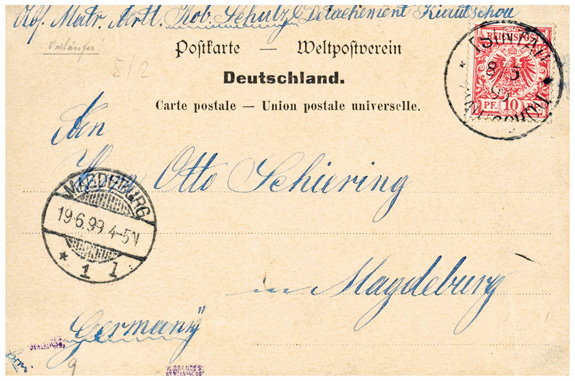 Abs. Matr. Artl. Rob. Schulz Detachement Kiautschou
Vorläufer!
Postkarte — Weltpostverein
Deutschland.
Carte postale — Union postale universelle.
REICHSPOST
PF. 10 PF.
TSINTAU
8 5
An
Herrn Otto Schiering
MAGDEBURG
19.6.99. 4-5N
* 1 l
in Magdeburg
Germany
9